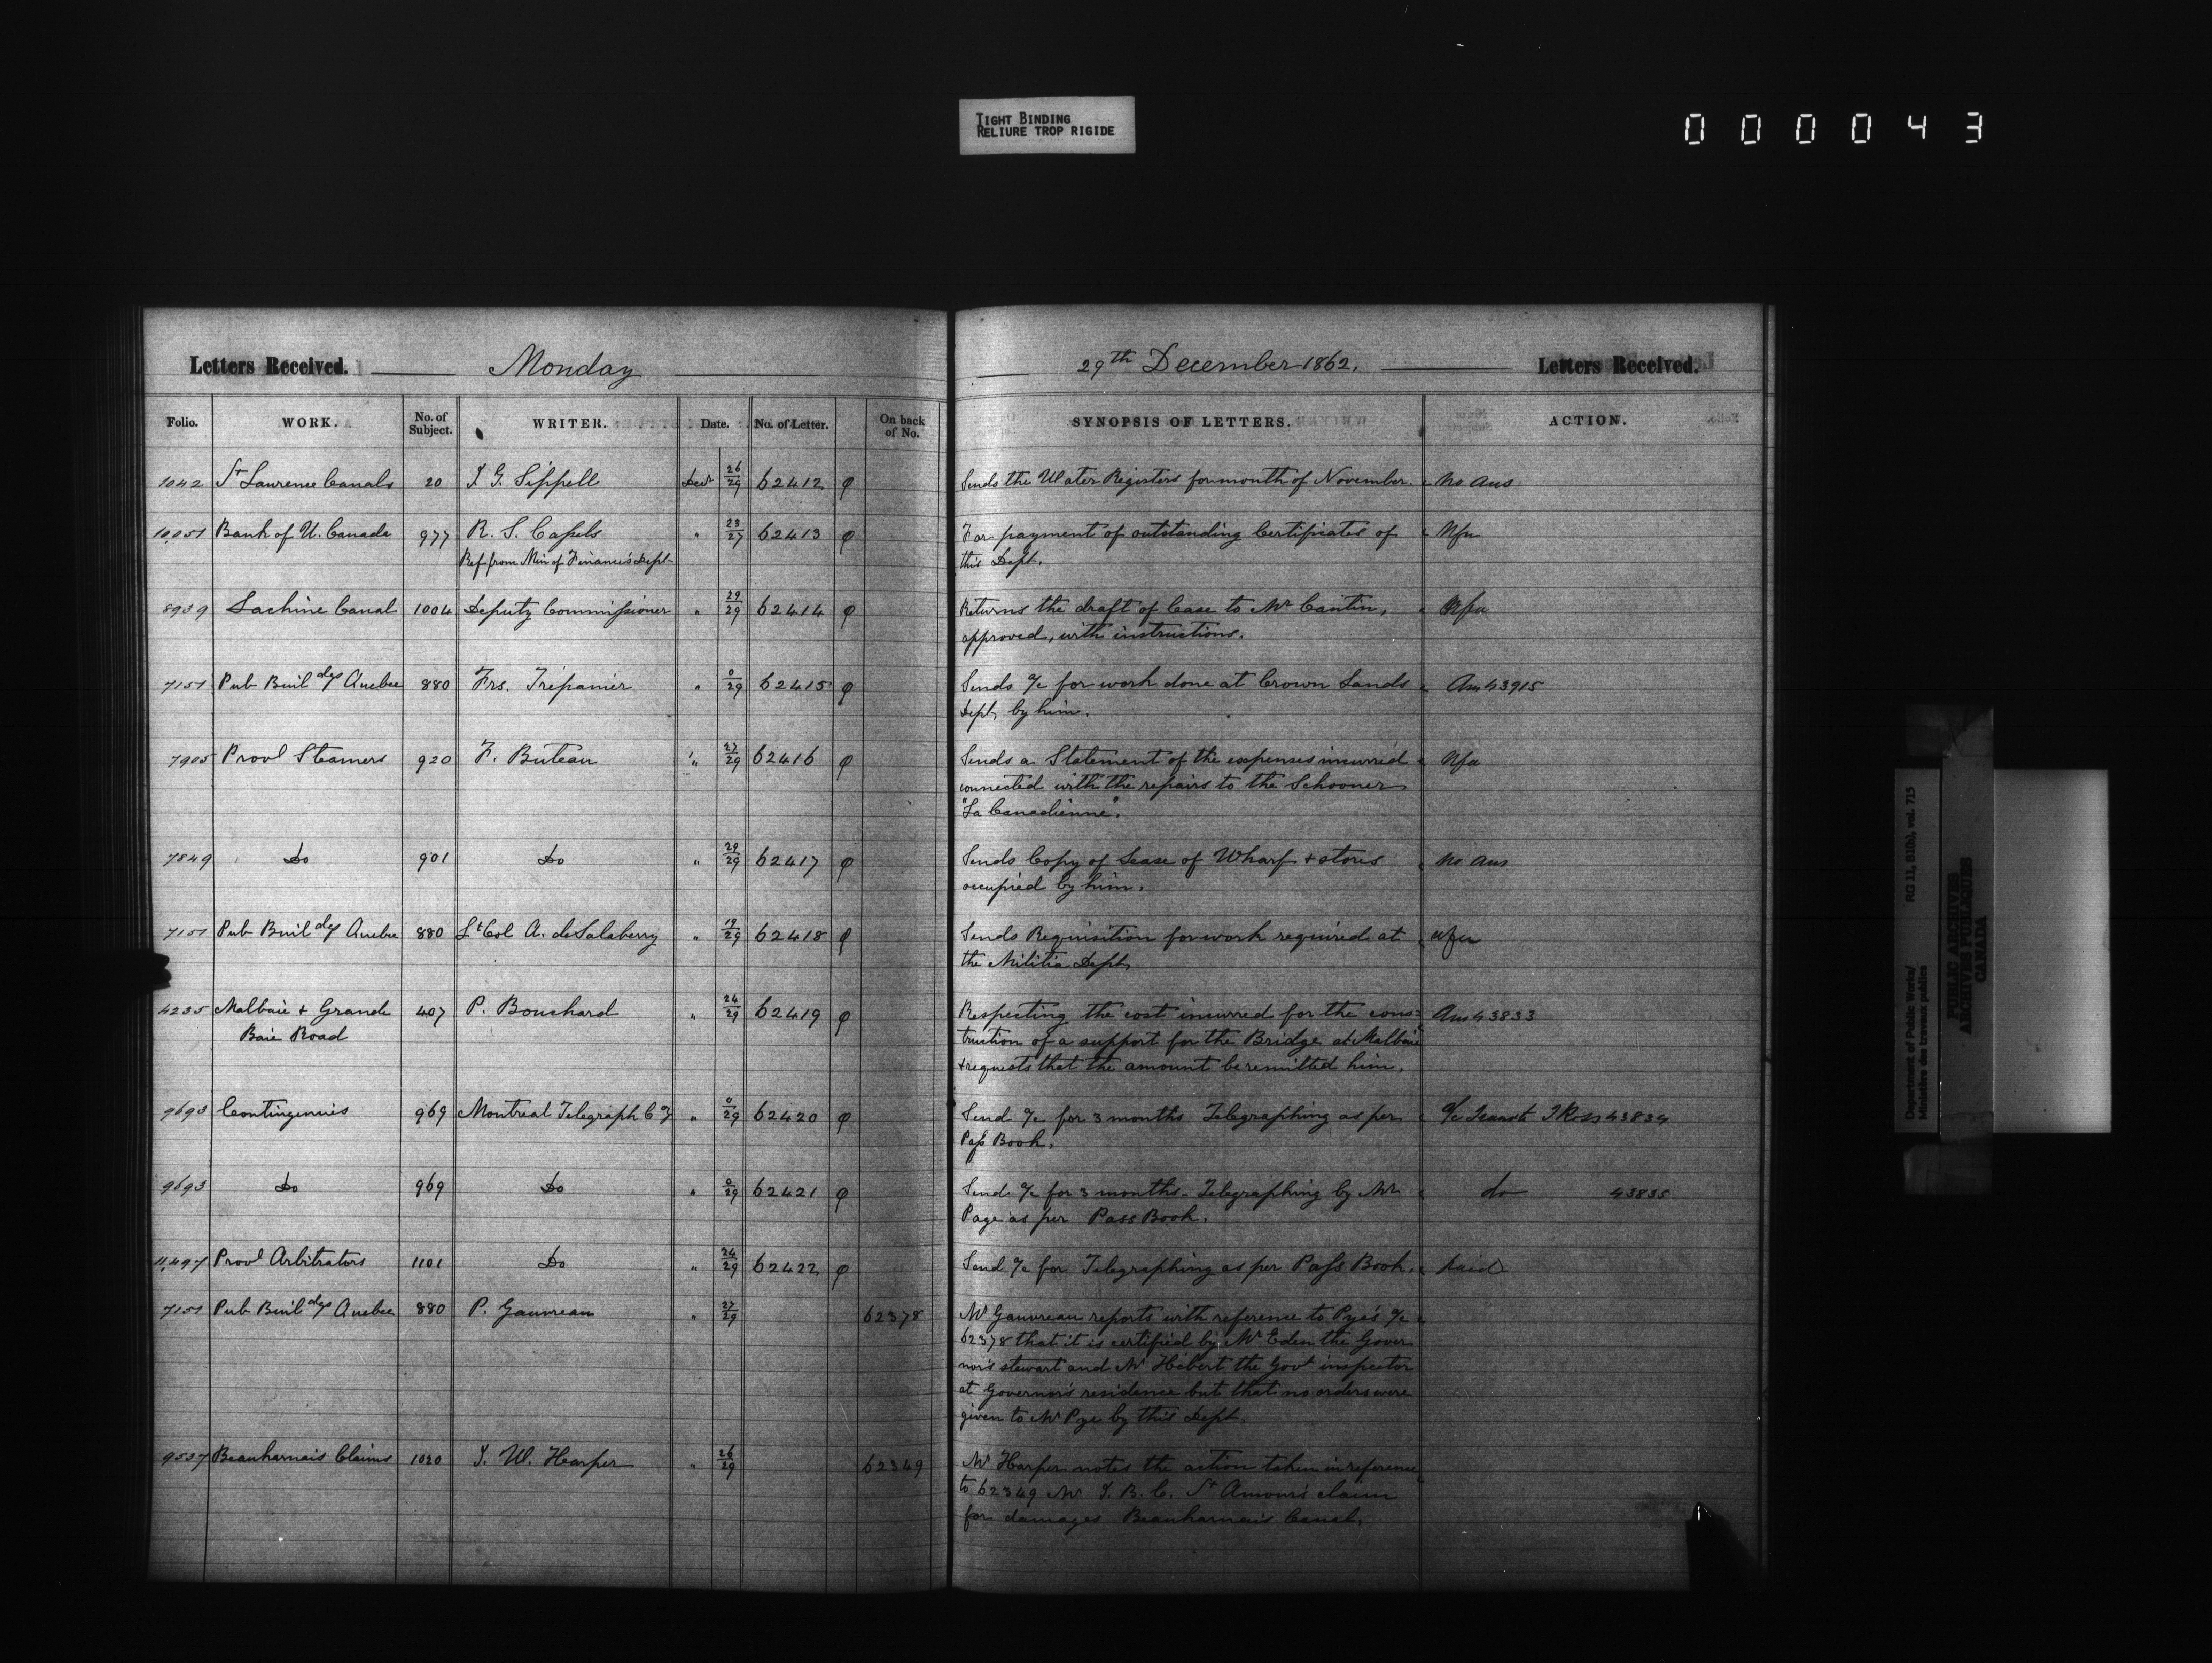 TIGHT BINDING
RELIURE TROP RIGIDE
000043
Letters Received. Monday 29th December 1862. Letters Received.
Folio. WORK. No. of Subject. WRITER. Date. No. of Letter. On back of No. SYNOPSIS OF LETTERS. ACTION.
1042 St Lawrence Canals 20 J G. Sippell Decr 26/29 62412 Sends the Water Registers for month of November. No Ans
10,051 Bank of U. Canada 977 R. S. Capels " 23/27 62413 For payment of outstanding Certificates of Nfa
Ref from Min of Finance's Dept this Dept.
8939 Lachine Canal 1004 Deputy Commissioner " 29/29 62414 Returns the draft of Lease to Mr Cantin, Nfa
approved, with instructions.
7151 Pub Buildgs Quebec 880 Frs. Trepanier " 0/29 62415 Sends a/c for work done at Crown Lands Ans 43915
Dept, by him.
7905 Provl Steamers 920 F. Buteau " 27/29 62416 Sends a Statement of the expenses incurred Nfa
connected with the repairs to the Schooner
"La Canadienne".
7849 Do 901 Do " 29/29 62417 Sends Copy of Lease of Wharf + stores No Ans
occupied by him.
7151 Pub Buildgs Quebec 880 Lt Col A. de Salaberry " 19/29 62418 Sends Requisition for work required at Nfa
the Militia Dept
4235 Malbaie + Grande 407 P. Bouchard " 24/29 62419 Respecting the cost incurred for the cons= Ans 43833
Baie Road truction of a support for the Bridge at Malbaie
+ requests that the amount be remitted him.
9693 Contingencies 969 Montreal Telegraph Coy " 0/29 62420 Send a/c for 3 months Telegraphing as per a/c J Ross 43834
Pass Book.
9693 Do 969 Do " 0/29 62421 Send a/c for 3 months Telegraphing by Mr do 43835
Page as per Pass Book.
11,497 Provl Arbitrators 1101 Do " 24/29 62422 Send a/c for Telegraphing as per Pass Book. Paid
7151 Pub Buildgs Quebec 880 P. Gauvreau " 27/29 62378 Mr Gauvreau reports with reference to Pye's a/c
62378 that it is certified by Mr Eden the Gover
nor's stewart and Mr Hébert the Govt inspector
at Governor's residence but that no orders were
given to Mr Pye by this Dept.
9537 Beauharnais Claims 1020 J. W. Harper " 26/29 62349 Mr Harper notes the action taken in reference
to 62349 Mr J. B. C. St Amour's claim
for damages Beauharnais Canal.
Department of Public Works/ RG 11, B1(b), vol. 715
Ministère des travaux publics
PUBLIC ARCHIVES
ARCHIVES PUBLIQUES
CANADA